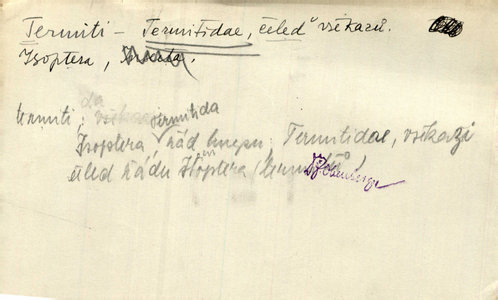 Termiti – Termitidae, čeleď všekazů.
Isoptera,
termiti; da termitida
Isoptera řád hmyzu; Termitidae, všekazi
čeleď řádu Isoptera (termitů)